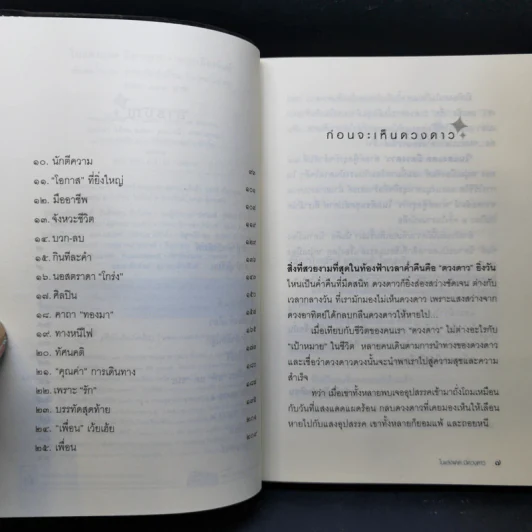 ๑๐. นักตีความ
๑๑. "โอกาส" ที่ยิ่งใหญ่
๑๒. มืออาชีพ
๑๓. จังหวะชีวิต
๑๔. บวก-ลบ
๑๕. กินทีละคำ
๑๖. นอสตราดา "โกร่ง"
๑๗. ศิลปิน
๑๘. คาถา "ทองมา"
๑๙. ทางหนีไฟ
๒๐. ทัศนคติ
๒๑. "คุณค่า" การเดินทาง
๒๒. เพราะ "รัก"
๒๓. บรรทัดสุดท้าย
๒๔. "เพื่อน" เว้ยเฮ้ย
๒๕. เพื่อน
ก่อนจะเห็นดวงดาว
สิ่งที่สวยงามที่สุดในท้องฟ้าเวลาค่ำคืนคือ "ดวงดาว" ยิ่งวัน
ไหนเป็นค่ำคืนที่มืดสนิท ดวงดาวก็ยิ่งส่องสว่างชัดเจน ต่างกับ
เวลากลางวัน ที่เรามักมองไม่เห็นดวงดาว เพราะแสงสว่างจาก
ดวงอาทิตย์ได้กลบกลืนดวงดาวให้หายไป...
เมื่อเทียบกับชีวิตของคนเรา "ดวงดาว" ไม่ต่างอะไรกับ
"เป้าหมาย" ในชีวิต หลายคนเดินตามการนำทางของดวงดาว
และเชื่อว่าดวงดาวดวงนั้นจะนำพาเราไปสู่ความสุขและความ
สำเร็จ
ทว่า เมื่อเขาทั้งหลายพบเจออุปสรรคเข้ามาถั่งโถมเหมือน
กับวันที่แสงแดดแผดร้อน กลบดวงดาวที่เคยมองเห็นให้เลือน
หายไปกับแสงอุปสรรค เขาทั้งหลายก็ยอมแพ้ และถอยหนี
๗